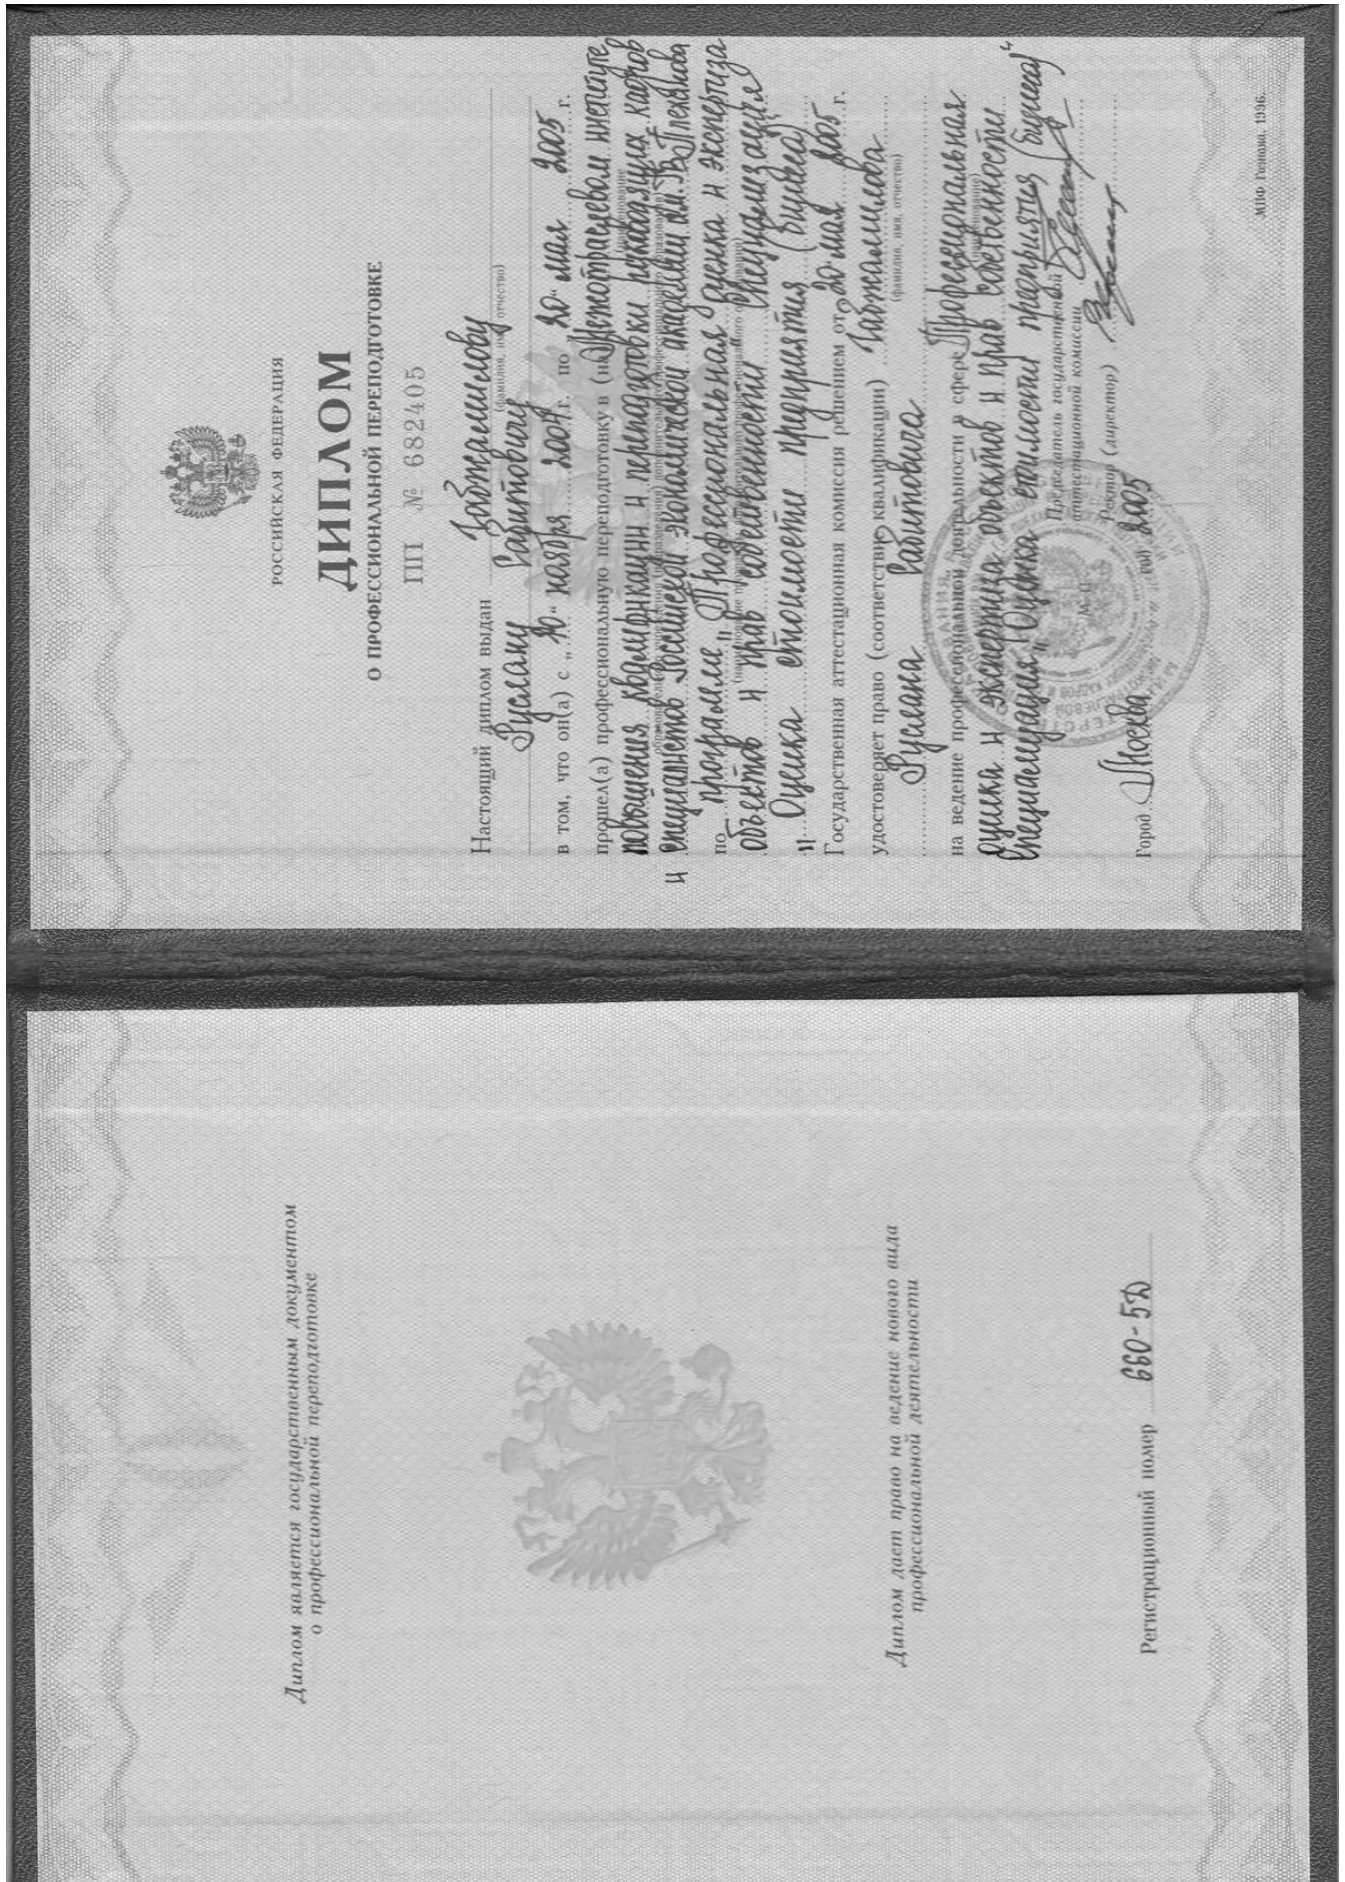 Диплом является государственным документом
о профессиональной переподготовке
Диплом дает право на ведение нового вида
профессиональной деятельности
Регистрационный номер 660-5Д
РОССИЙСКАЯ ФЕДЕРАЦИЯ
ДИПЛОМ
О ПРОФЕССИОНАЛЬНОЙ ПЕРЕПОДГОТОВКЕ
ПП № 682405
Настоящий диплом выдан
(фамилия, имя, отчество)
Руслану Сабитовичу
в том, что он(а) с „10“ ноября 2004 г. по „20“ мая 2005 г.
прошел(а) профессиональную переподготовку в (на) Межотраслевом институте
(наименование
повышения квалификации и переподготовки руководящих кадров
и специалистов Российской экономической академии им. Г.В. Плеханова
по программе „Профессиональная оценка и экспертиза
объектов и прав собственности" Специализация
„Оценка стоимости предприятия (бизнеса)
Государственная аттестационная комиссия решением от „20" мая 2005 г.
удостоверяет право (соответствие квалификации)
(фамилия, имя, отчество)
Руслана Сабитовича
на ведение профессиональной деятельности в сфере Профессиональная
(наименование)
оценка и экспертиза объектов и прав собственности
Специализация „Оценка стоимости предприятия (бизнеса)“
Председатель государственной
аттестационной комиссии
Ректор (директор)
М. П.
Город Москва год 2005
МПФ Гознака. 1996.